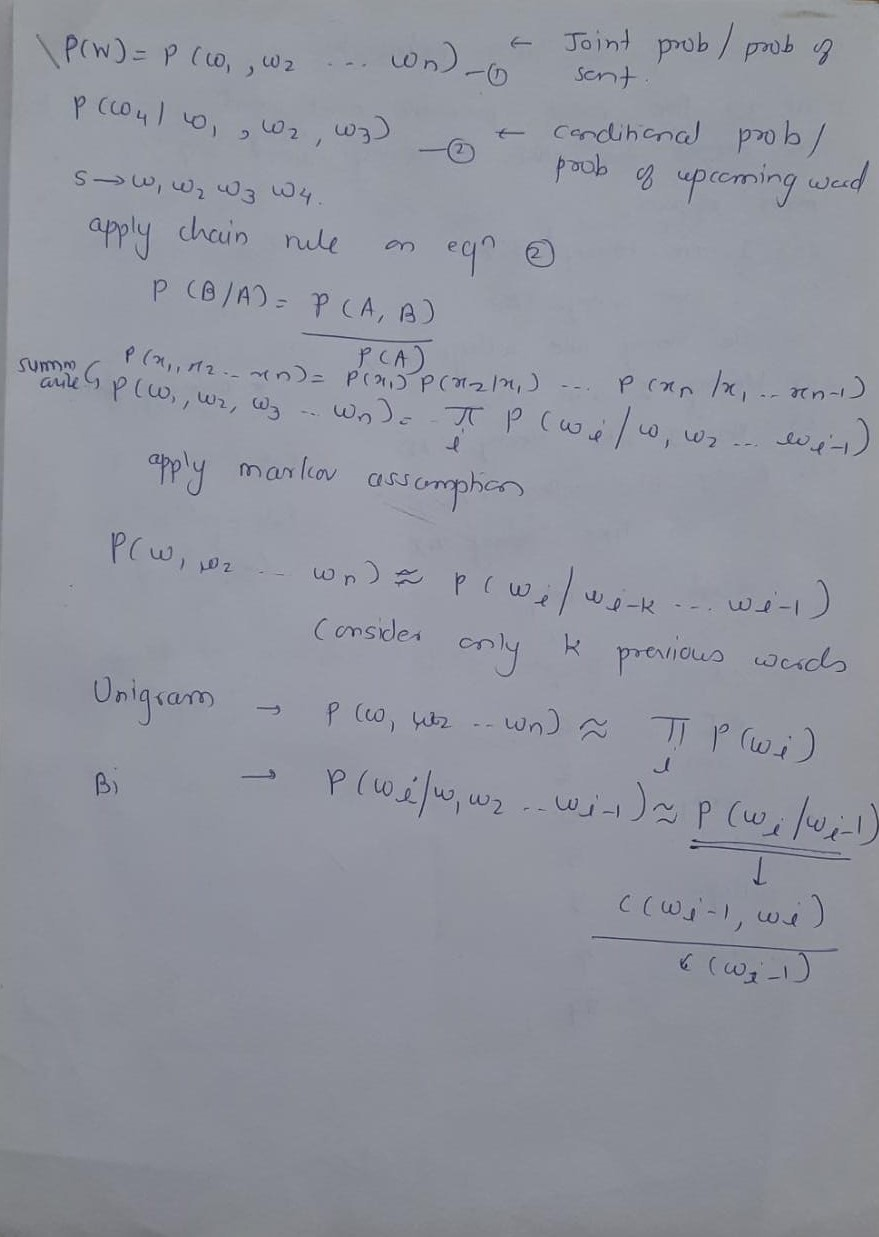 P(W) = P (w1, w2 ... wn) —① ← Joint prob / prob of
sent.
P (w4 | w1, w2, w3) —② ← Conditional prob /
prob of upcoming word
S → w1 w2 w3 w4.
apply chain rule on eqⁿ ②
P (B/A) = P (A, B)
P (A)
P(x1, x2 .. xn) = P(x1) P(x2/x1) ... P(xn /x1 .. xn-1)
P(w1, w2, w3 .. wn) = π P (wi / w1 w2 ... wi-1)
i
apply markov assumption
P(w1 w2 .. wn) ≈ P (wi / wi-k ... wi-1)
Consider only k previous words
Unigram → P (w1 w2 .. wn) ≈ π P(wi)
i
Bi → P(wi/w1 w2 .. wi-1) ≈ P (wi /wi-1)
↓
C (wi-1, wi)
C (wi-1)